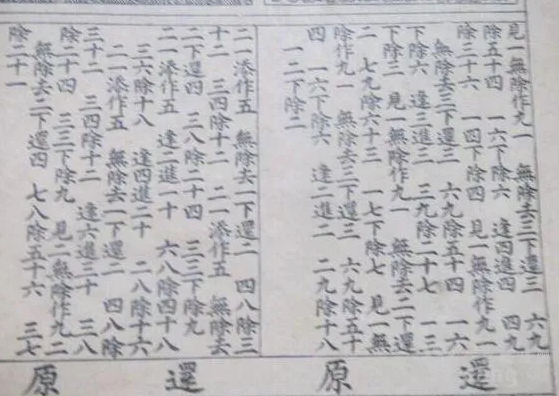 見一無除作九一　無除去三下還三　六九
除五十四　一六下除六　逢四進四　四九
除三十六　一四下除四　見一無除作九一
無除去三下還三　六九除五十四　一六
下除六　逢三進三　三九除二十七　一三
下除三　見一無除作九一　無除去二下還
二　七九除六十三　一七下除七　見一無
除作九一　無除去三下還三　六九除五十
四　一六下除六　逢二進二　二九除十八
一二下除二
還原
二一添作五　無除去一下還二　四八除三
十二　三四除十二　二一添作五　無除去
二下還四　三八除二十四　三三下除九
二一添作五　逢二進一十　六八除四十八
三六除十八　逢四進二十　二八除十六
二一添作五　無除去一下還二　四八除
三十二　三四除十二　逢六進三十　三八
除二十四　三三下除九　見一無除作九二
無除去二下還四　七八除五十六　三七
除二十一
還原